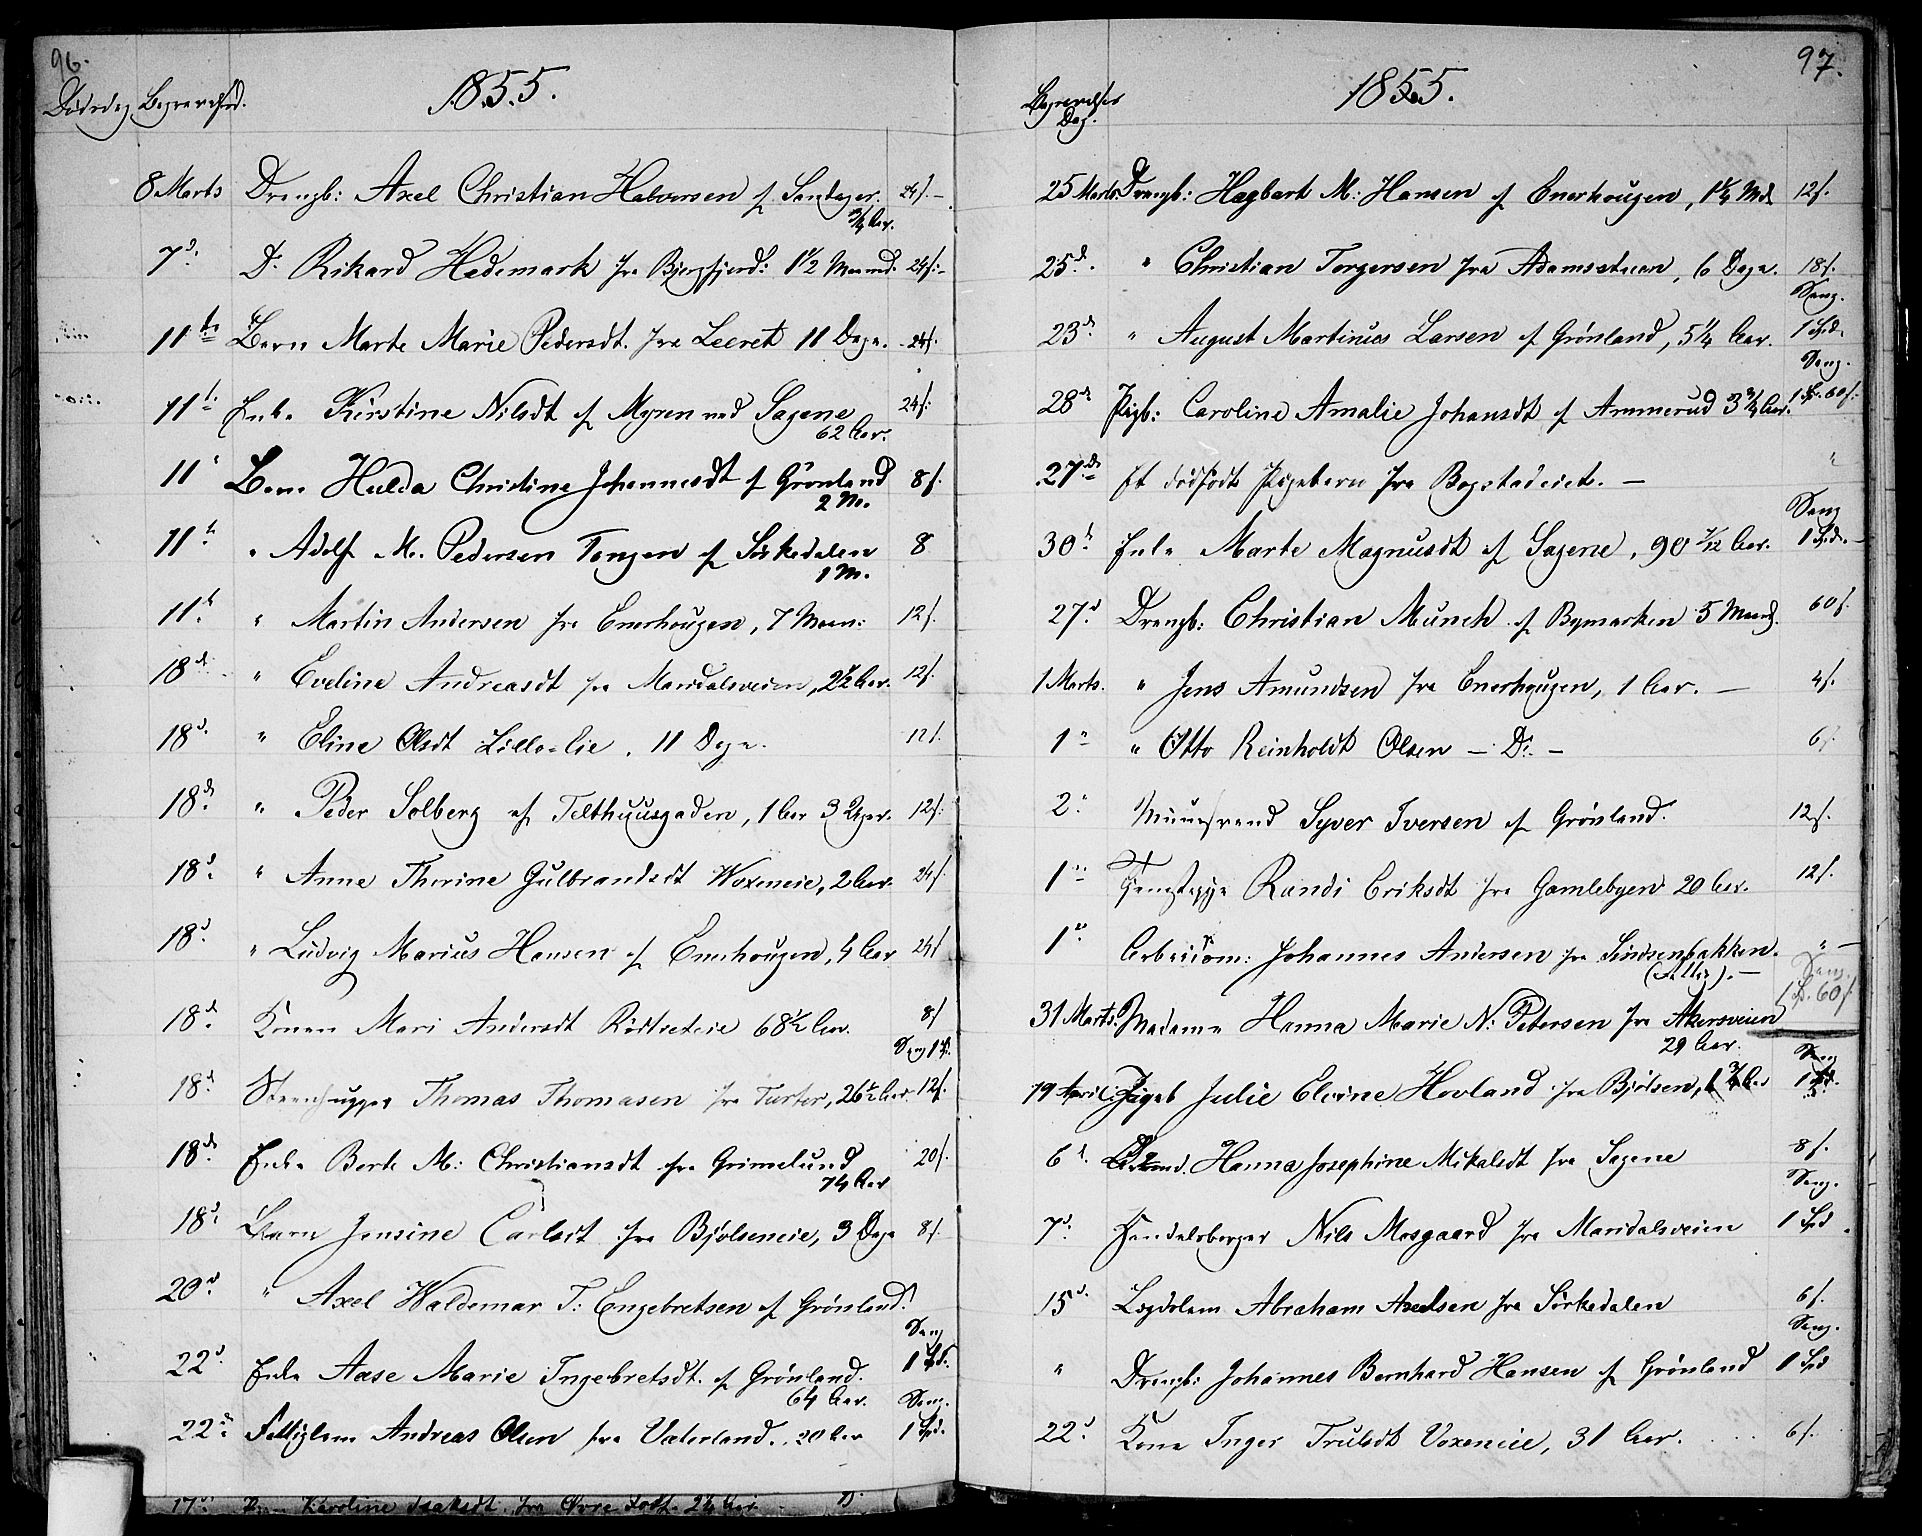 96.
Dødsdag Begravelsesd.
1855.
8 Marts Drengb: Axel Christian Halvorsen af Sandager. 24 s. –
3/4 Aar.
7 d. Do. Rikard Hedemark fra Bjergfjerd: 1 1/2 Maaned. 24 s. –
11 te Barn Marte Marie Pedersdt. fra Leeret 11 Dage. 24 s.
11 te Enke Kirstine Nilsdt af Myren ved Sagene 24 s.
62 Aar.
11 Barn Hulda Christine Johannesdt af Grønland 8 s.
2 M.
11 te " Adolf M. Pedersen Tangen af Sørkedalen 8
1 M.
11 te " Martin Andersen fra Enerhougen, 7 Maan: 12 s.
18 de " Eveline Andreasdt fra Maridalsveien, 2 1/2 Aar. 12 s.
18 d. " Eline Olsdt Lilloeie. 11 Dage. 12 s.
18 de " Peder Solberg af Telthuusgaden, 1 Aar 3 Uger. 12 s.
18 d. " Anne Thorine Gulbrandsdt Woxeneie, 2 Aar. 24 s.
18 d. " Ludvig Marius Hansen af Enerhougen, 4 Aar 24 s
18 d. Konen Mari Andersdt Rødtveteie 68 1/2 Aar. 8 s
Seng 1 Spd.
18 d Steenhugger Thomas Thomasen fra Torter, 26 1/2 Aar. 12 s.
18 de Enke Berte M: Christiansdt fra Grimelund 20 s.
74 Aar
18 d. Barn Jensine Carlsdt fra Bjølseneie, 3 Dage 8 s.
20 d. " Axel Waldemar T: Engebretsen af Grønland.
Seng
22 d. Enke Aase Marie Ingebretsdt. af Grønland. 1 Spd.
64 Aar. Seng.
22 d. Fattiglem Andreas Olsen fra Vaterland. 20 Aar 1 Spd.
17 d. D. Karoline Isaksdt. fra Øvre Foss. 2 1/4 Aar.
97.
Begravelses Dag.
1855.
25 Marts. Drengb: Hagbart M: Hansen af Enerhougen, 1 1/4 Md 12 s.
25 d. " Christian Torgersen fra Adamsstuen, 6 Dage. 18 s.
Seng.
23 d " August Martinus Larsen af Grønland, 5 1/4 Aar. 1 Spd.
Seng.
28 de Pigb: Caroline Amalie Johansdt af Ammerud 3 3/4 Aar. 1 Sp. 60 s.
27 de Et dødfødt Pigebarn fra Bogstadeiet. – "
Seng
30 te Enke Marte Magnusdt af Sagene, 90 7/12 Aar. 1 Spd. –
27 d. Drengb: Christian Munch af Bymarken 5 Maand. 60 s.
1 Marts. " Jens Amundsen fra Enerhougen, 1 Aar. – 4 s.
1 " " Otto Reinholdt Olsen – Do. – 6 s.
2 " Muursvend Syver Iversen af Grønland. 12 s.
1 " Tjenestepige Randi Eriksdt fra Gamlebyen 20 Aar. 12 s.
1 " Arbeidsm: Johannes Andersen fra Sindsenbakken. " –
Seng.
31 Marts. Madame Hanna Marie N: Petersen fra Akersveien 1 Sp. 60 s.
29 Aar. Seng
19 April: Pigeb Julie Elvine Hovland fra Bjølsen, 1 3/4 Aar 1 Spd.
6 d. Hanna Josephine Mikalsdt fra Sagene 8 s.
Seng.
7 d. Handelsborger Nils Mosgaard fra Maridalsveien 1 Spd.
15 d. Lægdslem Abraham Axelsen fra Sørkedalen 6 s.
Seng.
" Drengb: Johannes Bernhard Hansen af Grønland 1 Spd
22 d. Kone Inger Trulsdt Voxeneie, 31 Aar. 6 s.